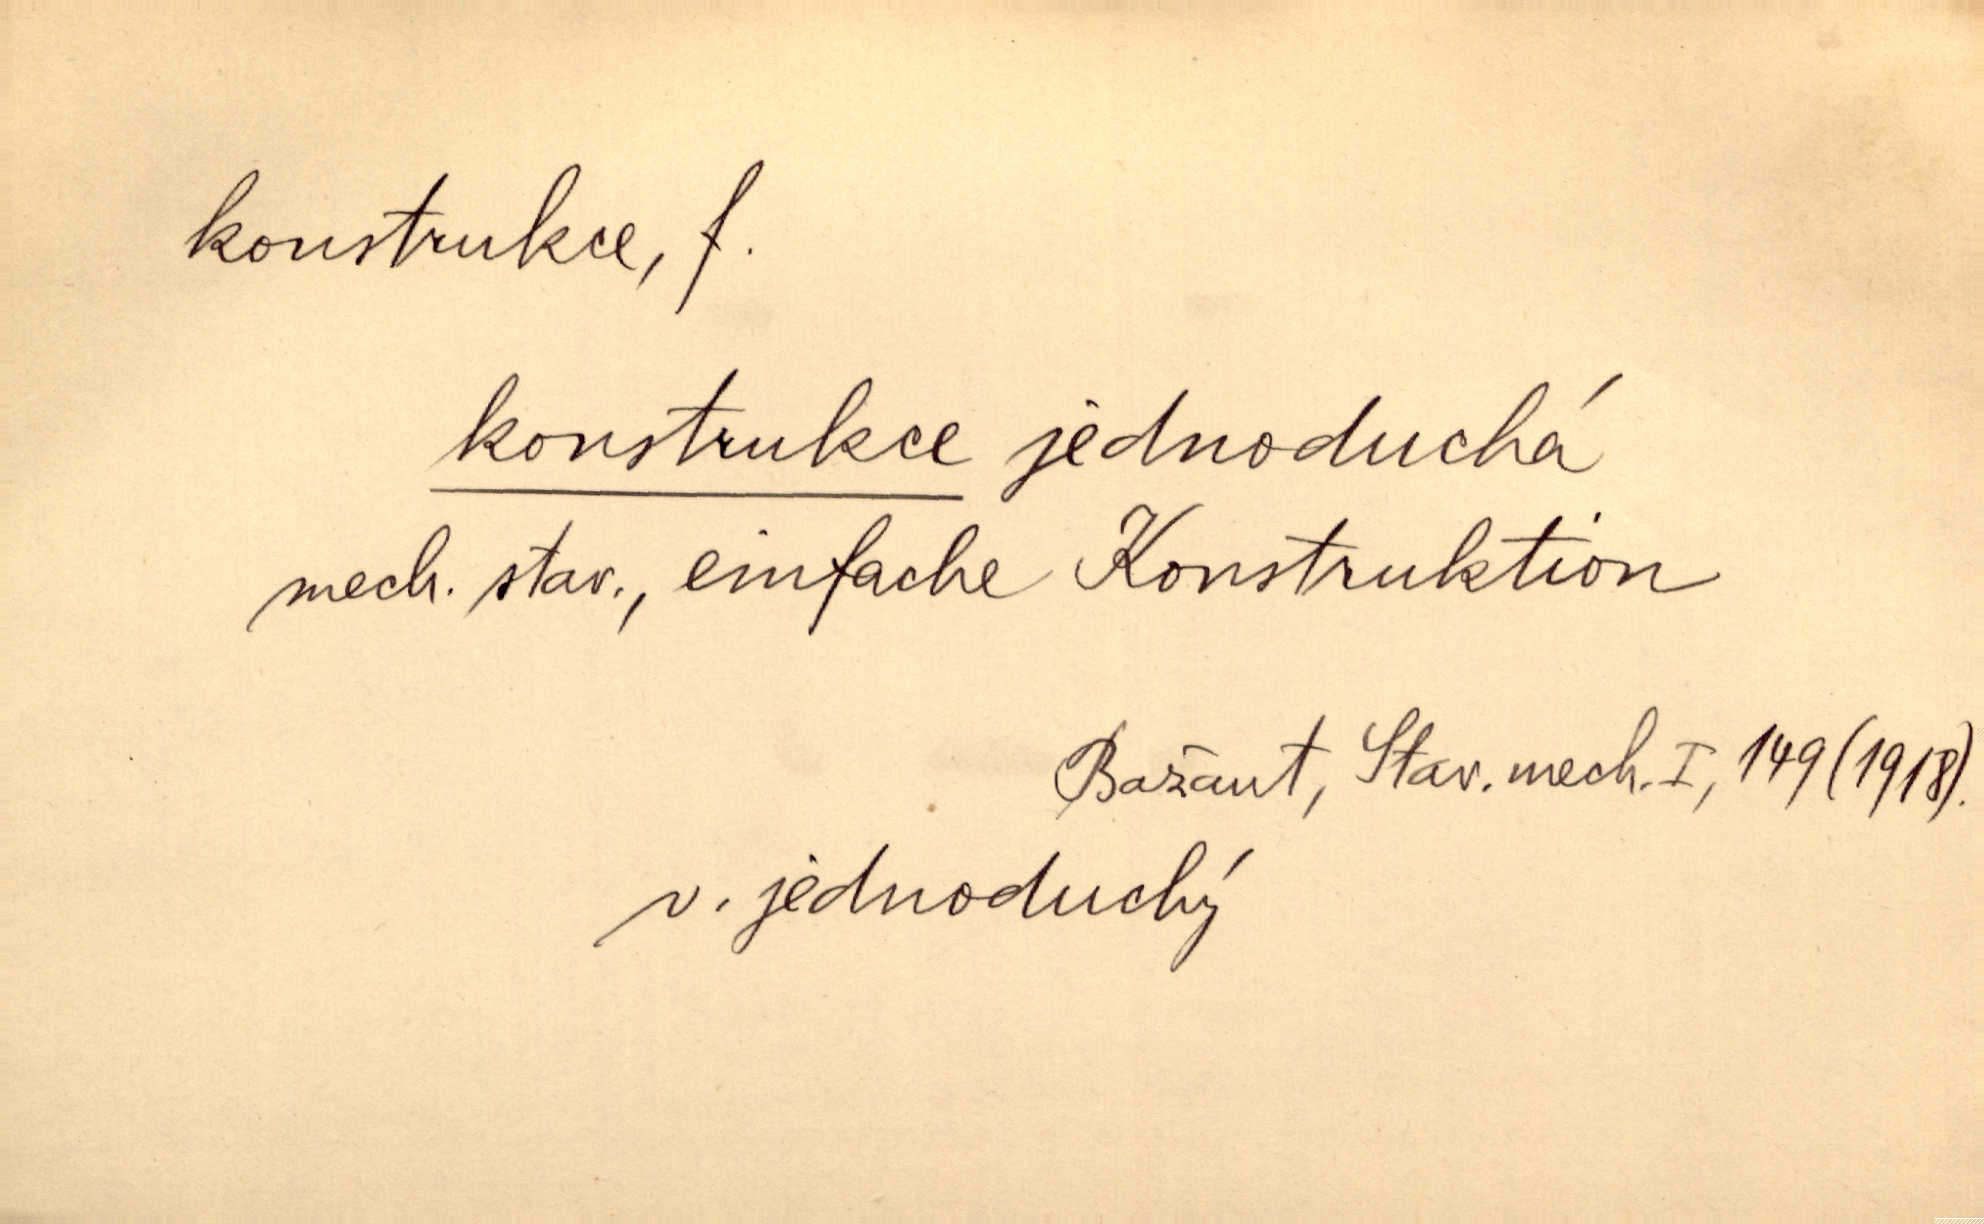 konstrukce, f.
konstrukce jednoduchá
mech. stav., einfache Konstruktion
Bažant, Stav. mech. I, 149 (1918).
v. jednoduchý